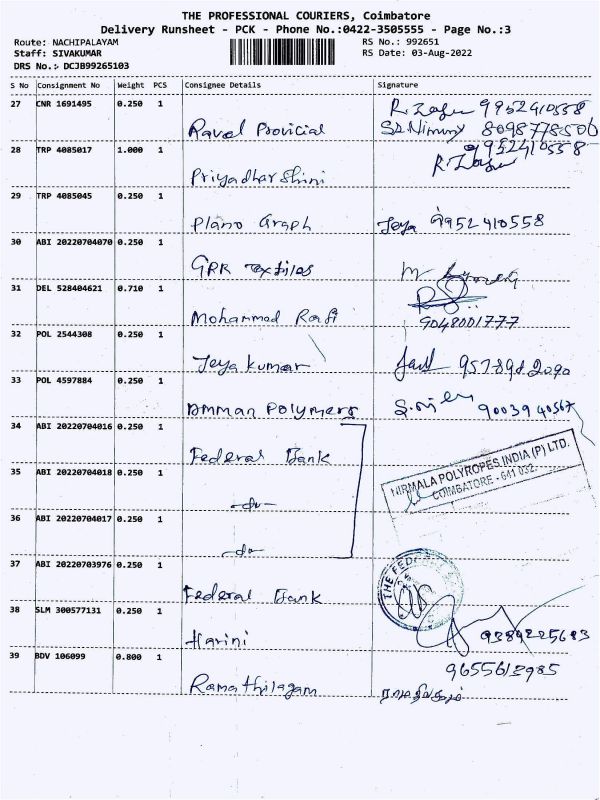 THE PROFESSIONAL COURIERS, Coimbatore
Delivery Runsheet - PCK - Phone No.:0422-3505555 - Page No.:3
Route: NACHIPALAYAM RS No.: 992651
Staff: SIVAKUMAR RS Date: 03-Aug-2022
DRS No.:- DCJB99265103
S No Consignment No Weight PCS Consignee Details Signature
27 CNR 1691495 0.250 1 9952410558
Ravel Provicial SD.Nimmy 8098778506
28 TRP 4085017 1.000 1 9952410558
Priyadharshini
29 TRP 4085045 0.250 1
Plano Graph Jeya 9952410558
30 ABI 20220704070 0.250 1
GRR Textiles
31 DEL 528404621 0.710 1
Mohammed Rafi 9048001777
32 POL 2544308 0.250 1
Jeyakumar
33 POL 4597884 0.250 1
Amman Polymers 9003940567
34 ABI 20220704016 0.250 1
Federal Bank
NIRMALA POLYROPES INDIA (P) LTD.
COIMBATORE - 641 032.
35 ABI 20220704018 0.250 1
-do-
36 ABI 20220704017 0.250 1
-do-
37 ABI 20220703976 0.250 1 THE FEDERAL
Federal Bank
38 SLM 300577131 0.250 1
Harini
39 BDV 106099 0.800 1
Ramathilagam ராமதிலகம்